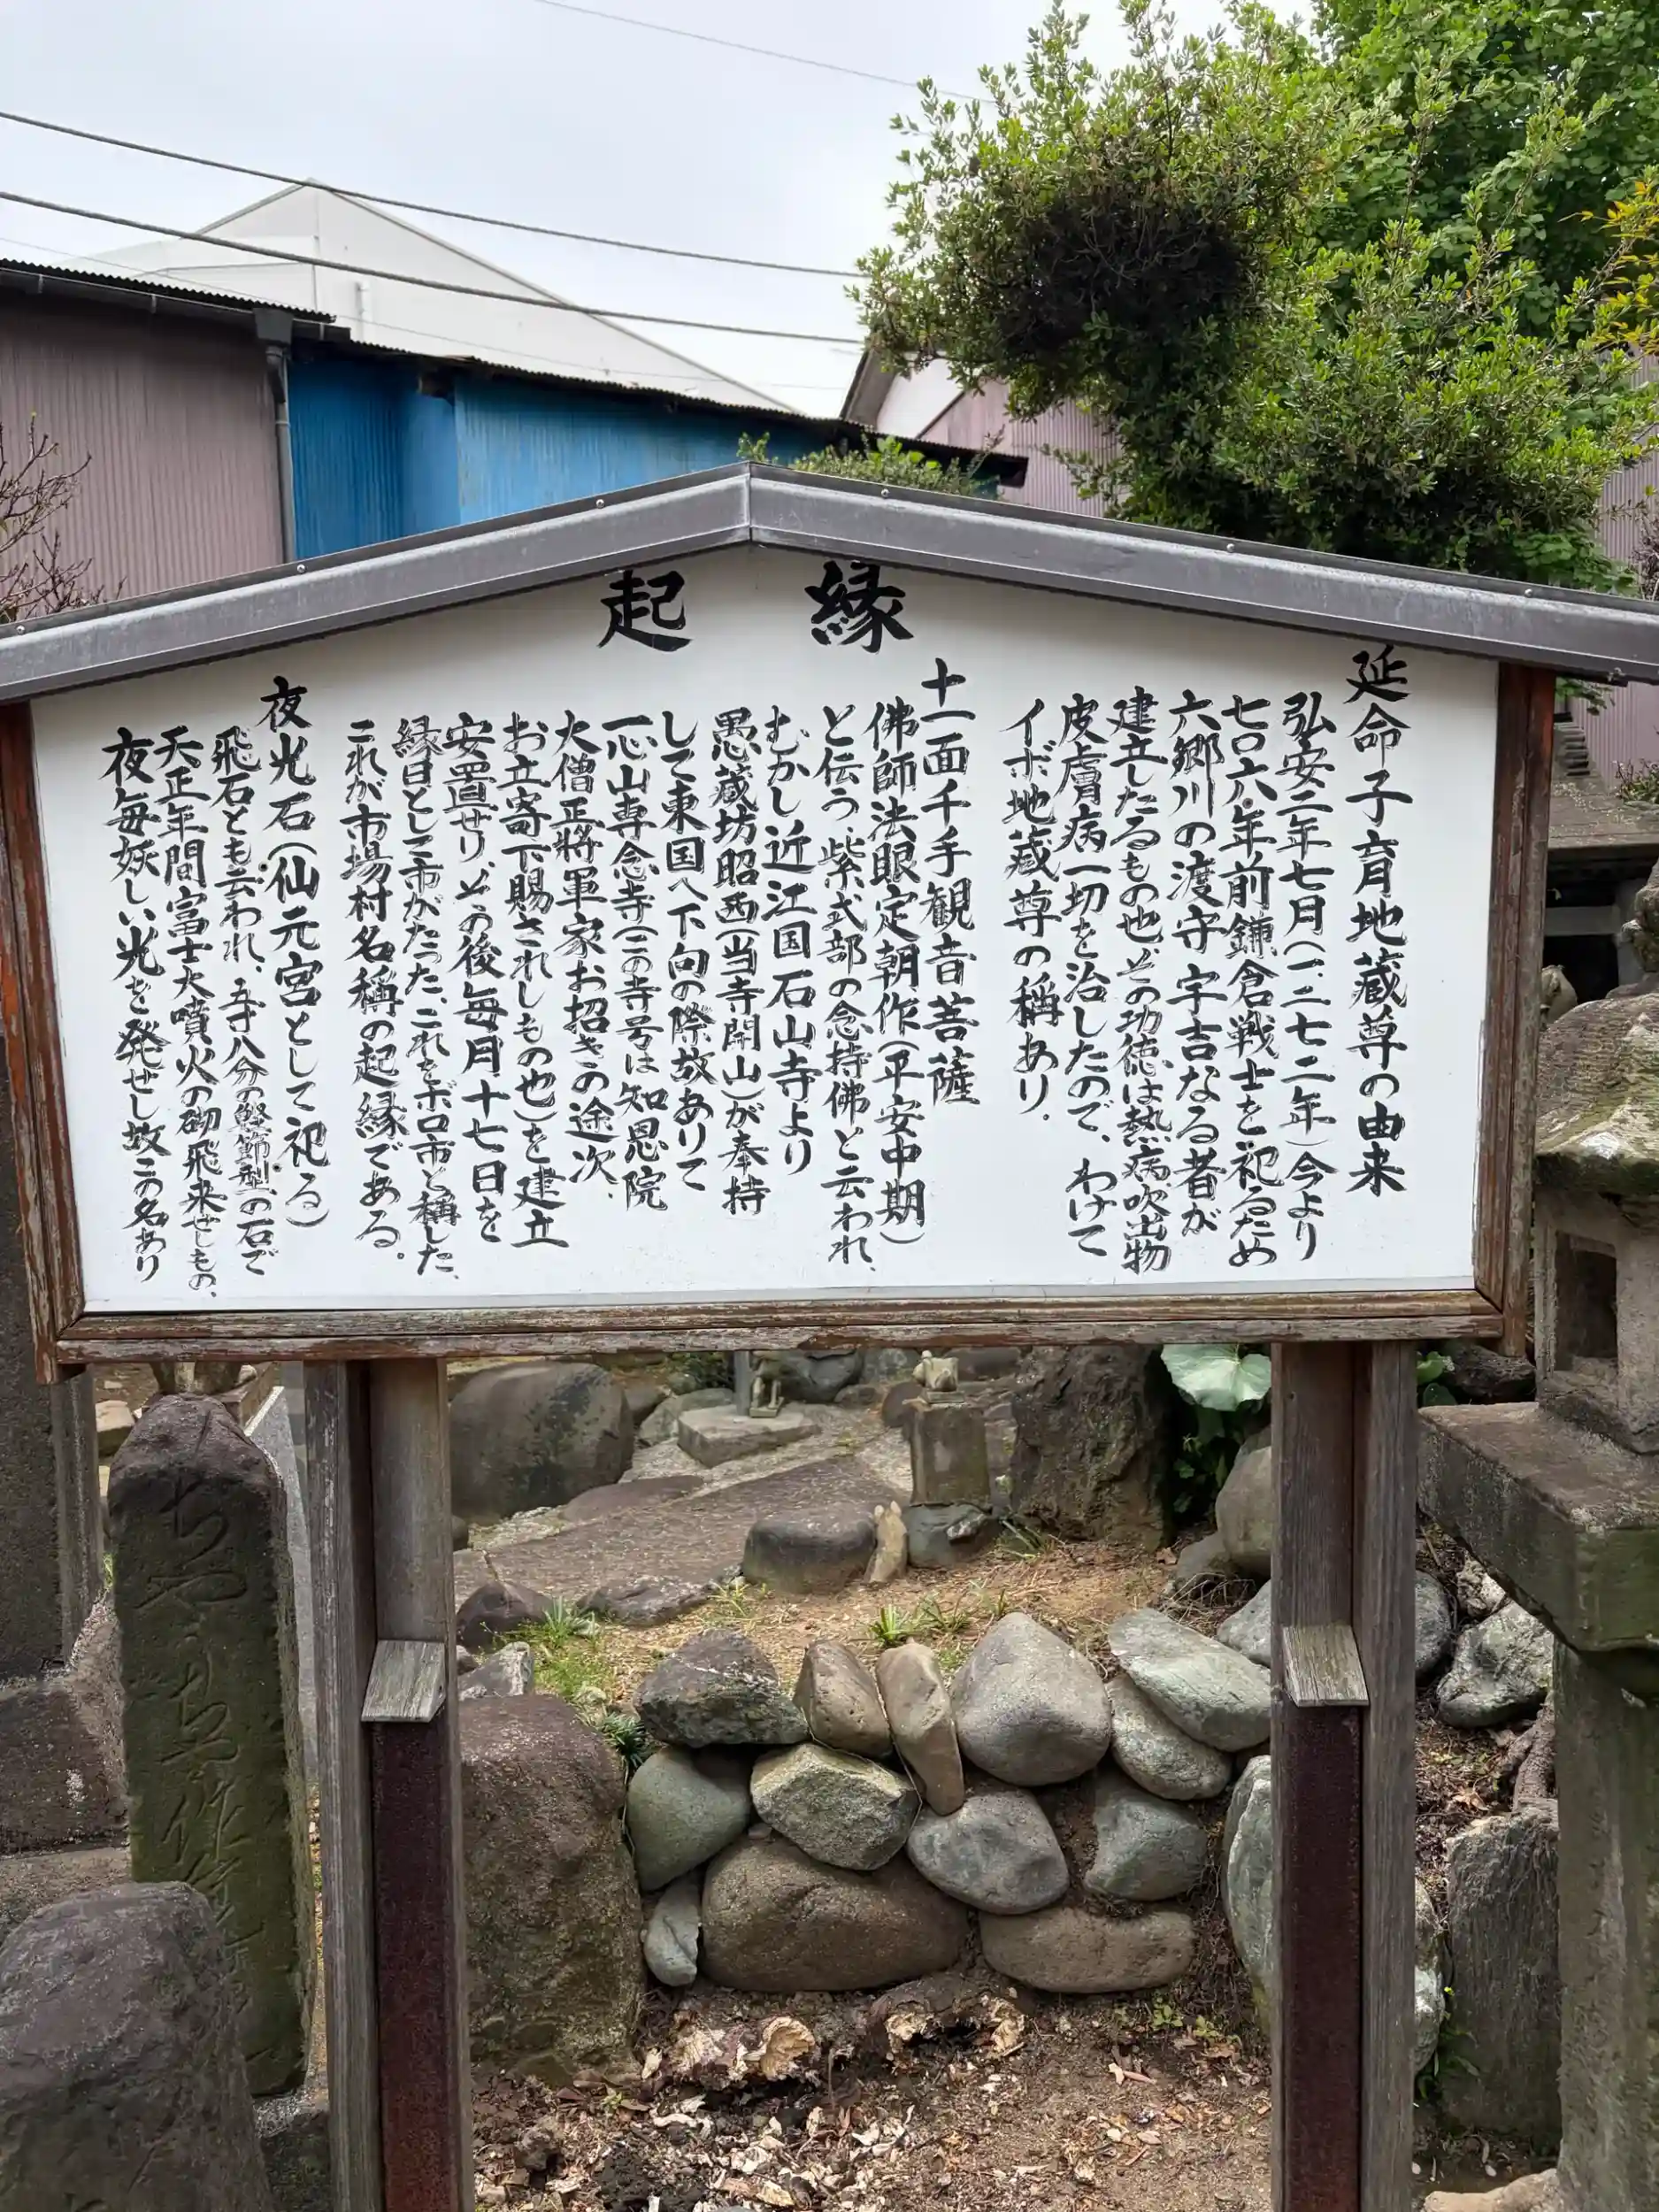 縁起
延命子育地蔵尊の由来
弘安二年七月(一二七二年)今より
七〇六年前鎌倉戦士を祀るため
六郷川の渡守宇吉なる者が
建立したるもの也、その功徳は熱病吹出物
皮膚病一切を治したので、わけて
イボ地蔵尊の称あり.
十一面千手観音菩薩
佛師法眼定朝作(平安中期)
と伝う、紫式部の念持佛と云われ、
むかし近江国石山寺より
愚蔵坊昭西(当寺開山)が奉持
して東国へ下向の際故ありて
一心山専念寺(この寺号は知恩院
大僧正将軍家お招きの途次、
お立寄下賜されしもの也)を建立
安置せり、その後毎月十七日を
縁日として市がたった、これをボロ市と称した、
これが市場村名称の起縁である.
夜光石(仙元宮として祀る)
飛石とも云われ、五寸八分の鰹節型の石で
天正年間富士大噴火の砌飛来せしもの、
夜毎妖しい光を発せし故この名あり